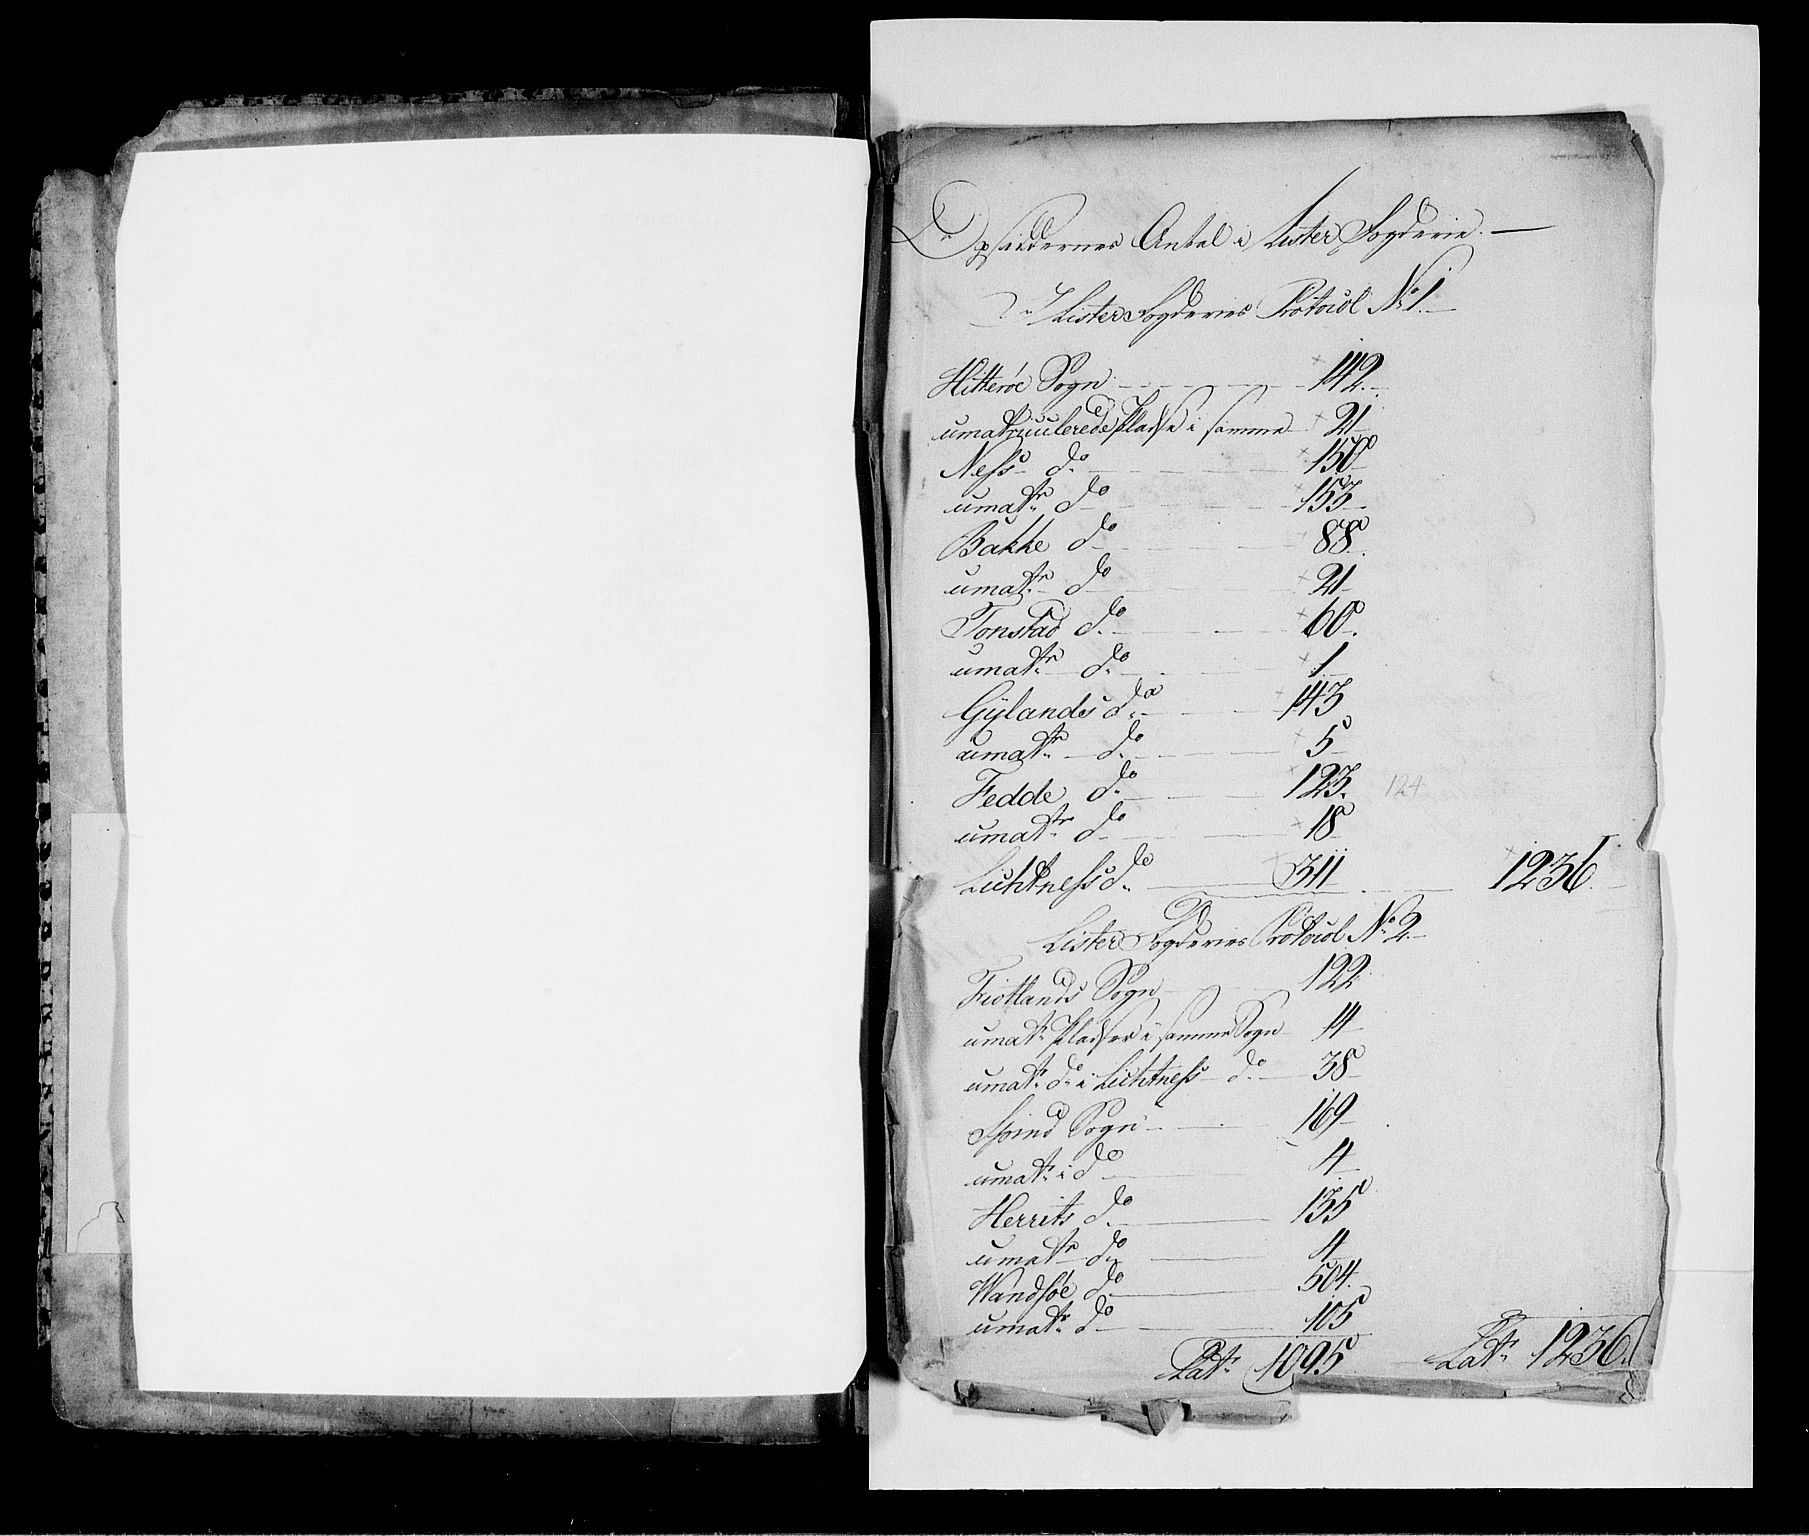 Opsiddernes Antal i Lister Fogderie.
I Lister Fogderies Protocol No 1.
Hitterøe Sogn 142.
umatriculerede Pladse i samme 21
Ness do 150
umatr do 153
Bakke do 88
umatr do 21
Tonstad do 60.
umatr do 1
Gylands do 143
umatr do 5
Fedde do 123. 124
umatr do 18
Lichtness do 311 1236.
Lister Fogderies Protocol No 2.
Sogn 122
umatr Pladser i samme Sogn 14
umatr do i Lichtness do 38
Spind Sogn 169
umatr i do 4
Herrits do 135
umatr do 4
Wandsøe do 504.
umatr do 105
Latr 1095 Latr 1236.